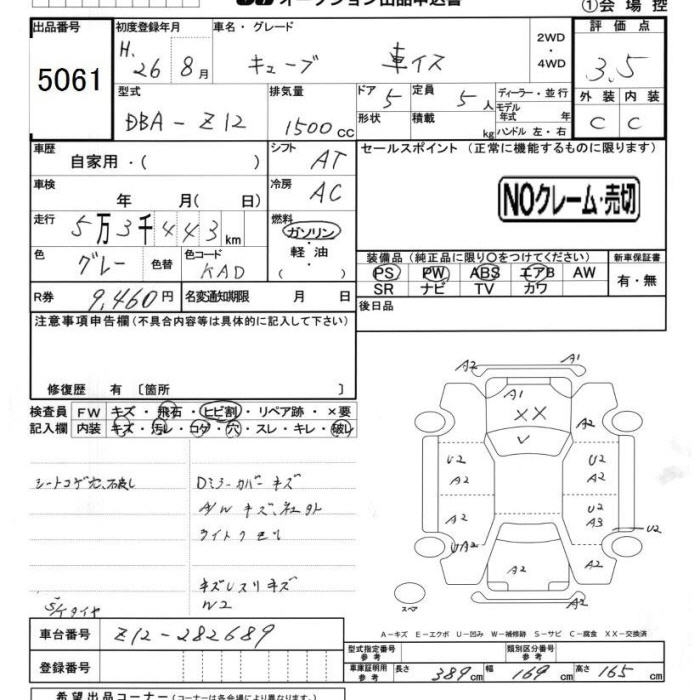 オークション出品申込書
①会場控
出品番号 初度登録年月 車名・グレード 2WD ・ 4WD 評価点
5061 H. 26 8月 キューブ 車イス 3.5
型式 排気量 ドア 5 定員 5人 ディーラー・並行 外装 内装
DBA-Z12 1500cc 形状 積載 kg モデル年式 年 ハンドル 左・右 C C
車歴 自家用・( ) シフト AT セールスポイント (正常に機能するものに限ります)
車検 年 月( 日) 冷房 AC NOクレーム・売切
走行 5万3千443km 燃料 ガソリン・軽油・( )
色 グレー 色替 色コード KAD 装備品 (純正品に限り○をつけてください) 新車保証書
PS PW ABS エアB AW 有・無
SR ナビ TV カワ
R券 9,460円 名変通知期限 月 日 後日品
注意事項申告欄 (不具合内容等は具体的に記入して下さい)
修復歴 有 〔箇所 〕
検査員 FW キズ・飛石・ヒビ割・リペア跡・×要
記入欄 内装 キズ・汚レ・コゲ・穴・スレ・キレ・破レ
シートコゲ穴、破レ Dミラーカバーキズ
A/W キズ、
ライトクモリ
キズレスリキズ
W2
S/Tタイヤ
A2 A1
A1
XX A2
U2 U2
A2 A2
U2
A2 A3 U2
UA2 A2 A2
スペア A2
A-キズ E-エクボ U-凹み W-補修跡 S-サビ C-腐食 XX-交換済
車台番号 Z12-282689
型式指定番号 参考 類別区分番号 参考
登録番号 車庫証明用 参考 長さ 389cm 幅 169cm 高さ 165cm
希望出品コーナー (コーナーは各会場により異なります。)